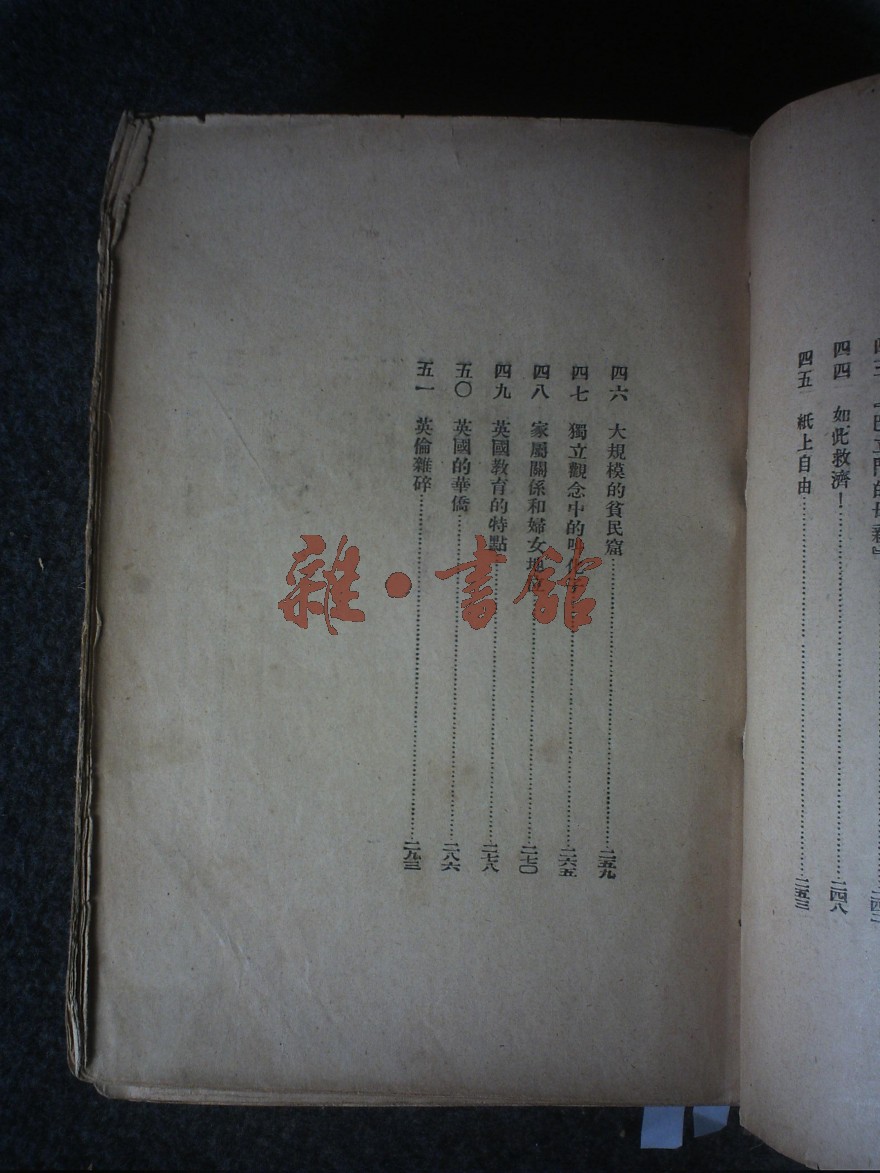 四四 如此救濟！……二四八
四五 紙上自由……二五三
四六 大規模的貧民窟……二五九
四七 獨立觀念中的……二六五
四八 家屬關係和婦女地位……二七〇
四九 英國教育的特點……二七八
五〇 英國的華僑……二八六
五一 英倫雜碎……二九三
雜·書館